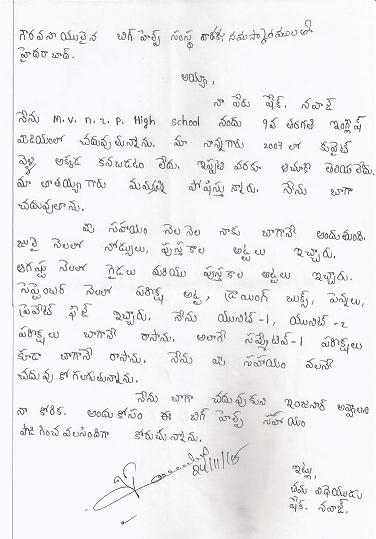 గౌరవనీయులైన బిగ్ హెల్ప్ సంస్థ వారికి నమస్కారములతో
హైదరాబాద్.
అయ్యా,
నా పేరు షేక్. నవాజ్
నేను M.V.N.Z.P. High school నందు 9వ తరగతి ఇంగ్లీష్
మీడియంలో చదువుచున్నాను. మా నాన్నగారు 2007 లో కువైట్
వెళ్లి అక్కడ కనబడటం లేదు. ఇప్పటి వరకూ ఆచూకీ తెలియ లేదు.
మా తాతయ్యగారు మమ్మల్ని పోషిస్తున్నారు. నేను బాగా
చదువుతాను.
మీ సహాయం నెల నెల నాకు బాగానే అందుతుంది.
జులై నెలలో నోట్సులు, పుస్తకాల అట్టలు ఇచ్చారు.
ఆగష్టు నెలలో గైడులు మరియు పుస్తకాల అట్టలు ఇచ్చారు.
సెప్టెంబర్ నెలలో పరీక్ష అట్ట, డ్రాయింగ్ బుక్స్, పెన్నులు,
ప్రైవేట్ ఫీజ్ ఇచ్చారు. నేను యునిట్-1, యునిట్-2
పరీక్షలు బాగానే రాసాను. అలాగే సమ్మేటివ్-1 పరీక్షలు
కూడా బాగానే రాసాను. నేను మీ సహాయం వలనే
చదువు కో గలుగుతున్నాను.
నేను బాగా చదువుకుని ఇంజనీర్ అవ్వాలని
నా కోరిక. అందుకోసం ఈ బిగ్ హెల్ప్ సహాయం
పొడిగించ వలసిందిగా కోరుచున్నాను.
24/11/15
ఇట్లు,
తమ విధేయుడు
షేక్. నవాజ్.